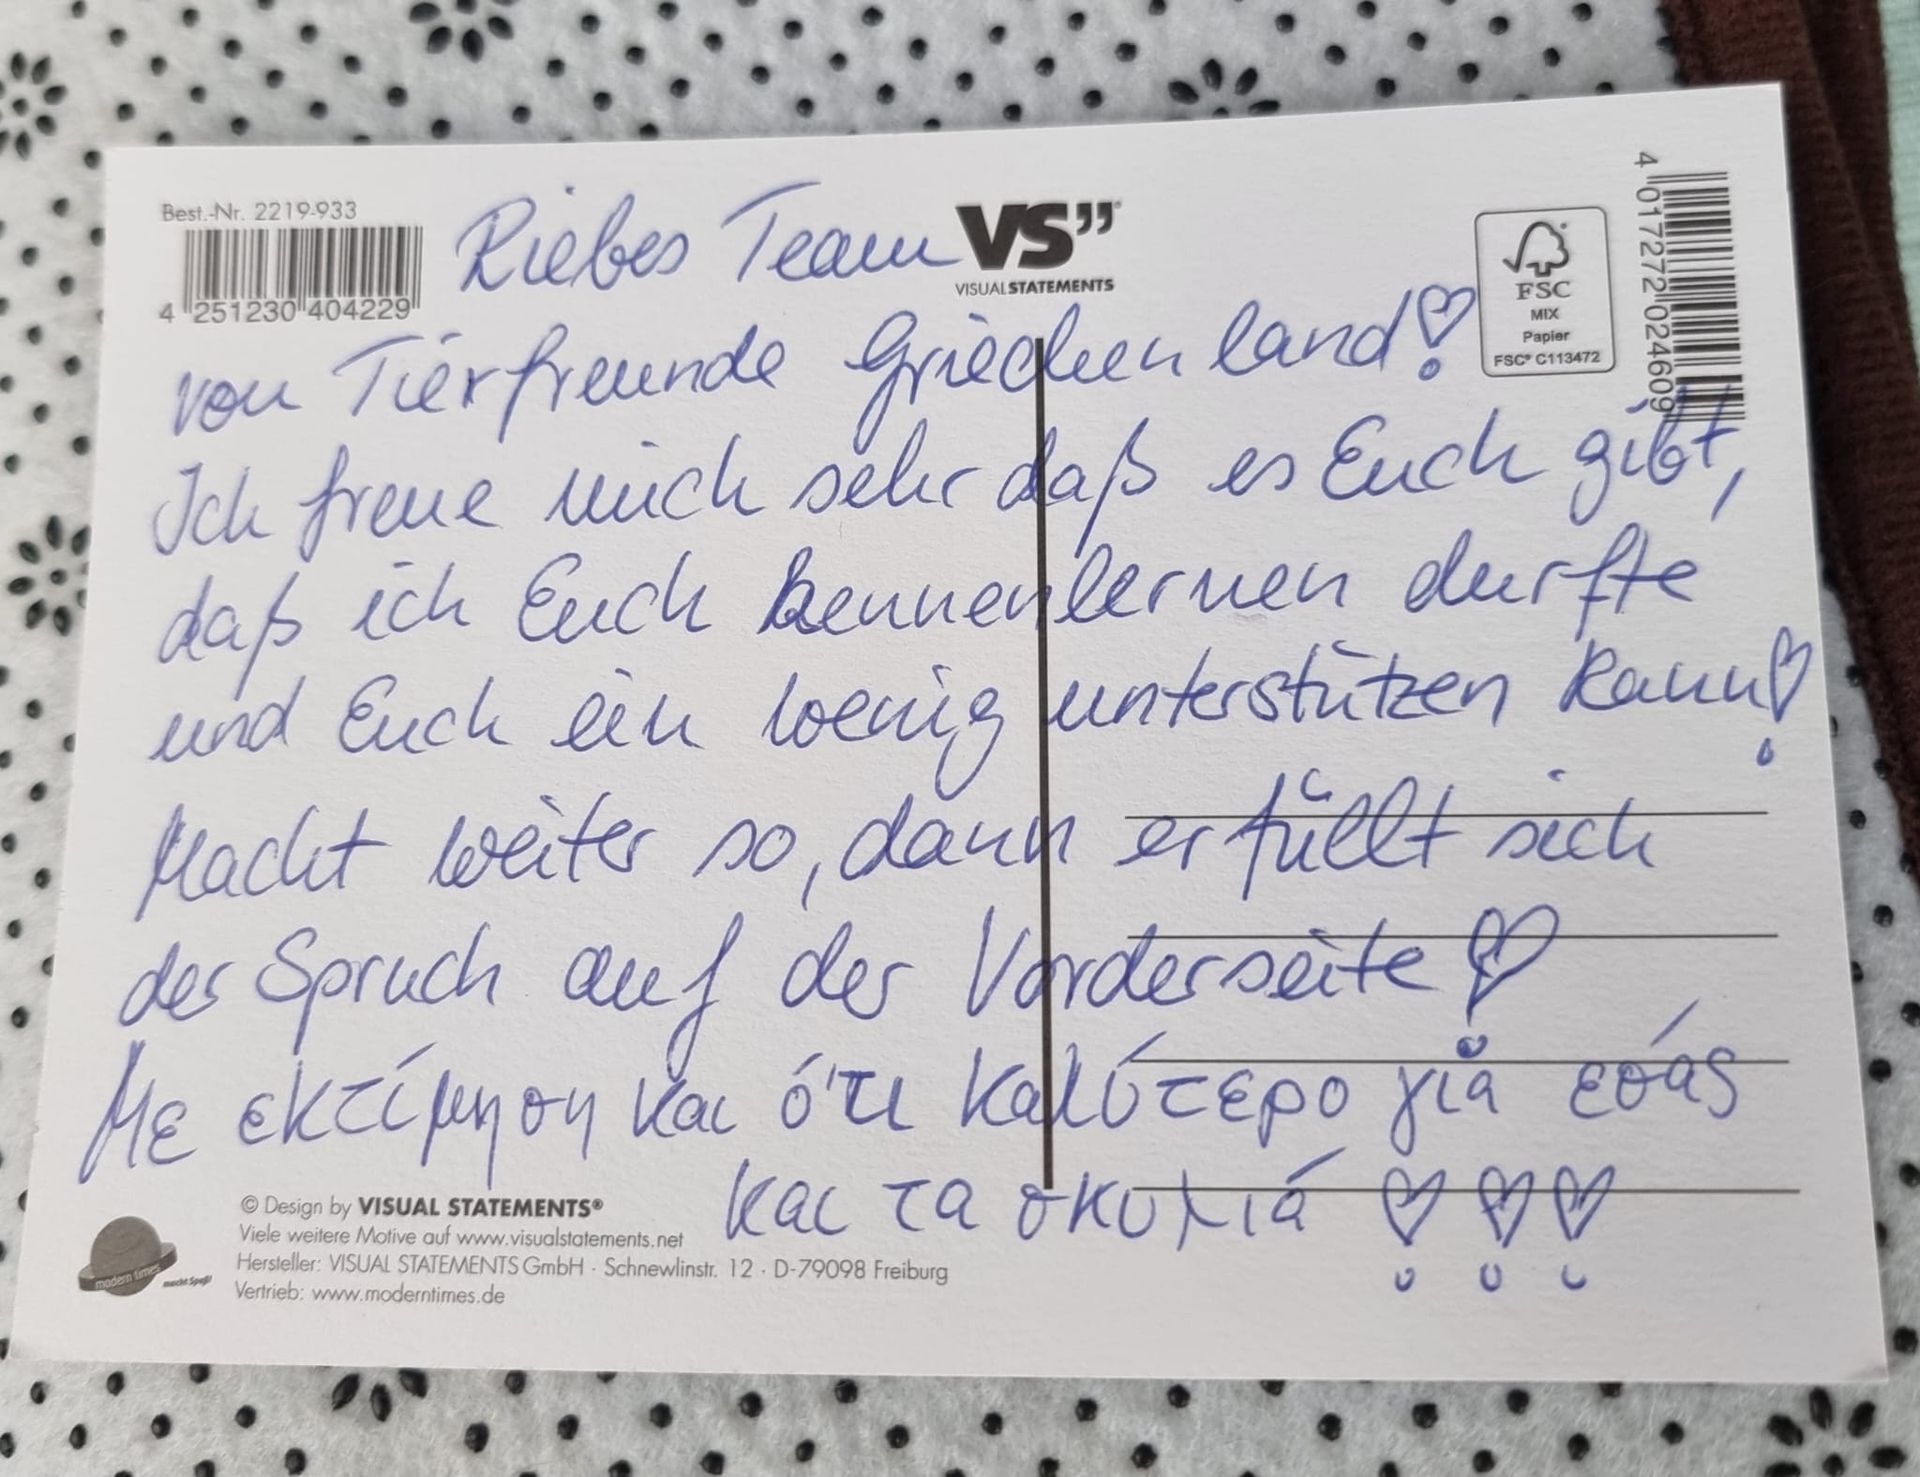 Best.-Nr. 2219-933
4 251230 404229
Liebes Team
VS”
VISUALSTATEMENTS
FSC
MIX
Papier
FSC® C113472
4 017272 024609
von Tierfreunde Griechenland!
Ich freue mich sehr daß es Euch gibt,
daß ich Euch kennenlernen durfte
und Euch ein wenig unterstützen kann!
Macht weiter so, dann erfüllt sich
der Spruch auf der Vorderseite!
Με εκτίμηση και ό'τι καλύτερο για εσάς
και τα σκυλιά ! ! !
© Design by VISUAL STATEMENTS®
Viele weitere Motive auf www.visualstatements.net
Hersteller: VISUAL STATEMENTS GmbH · Schnewlinstr. 12 · D-79098 Freiburg
Vertrieb: www.moderntimes.de
modern times
macht Spaß!